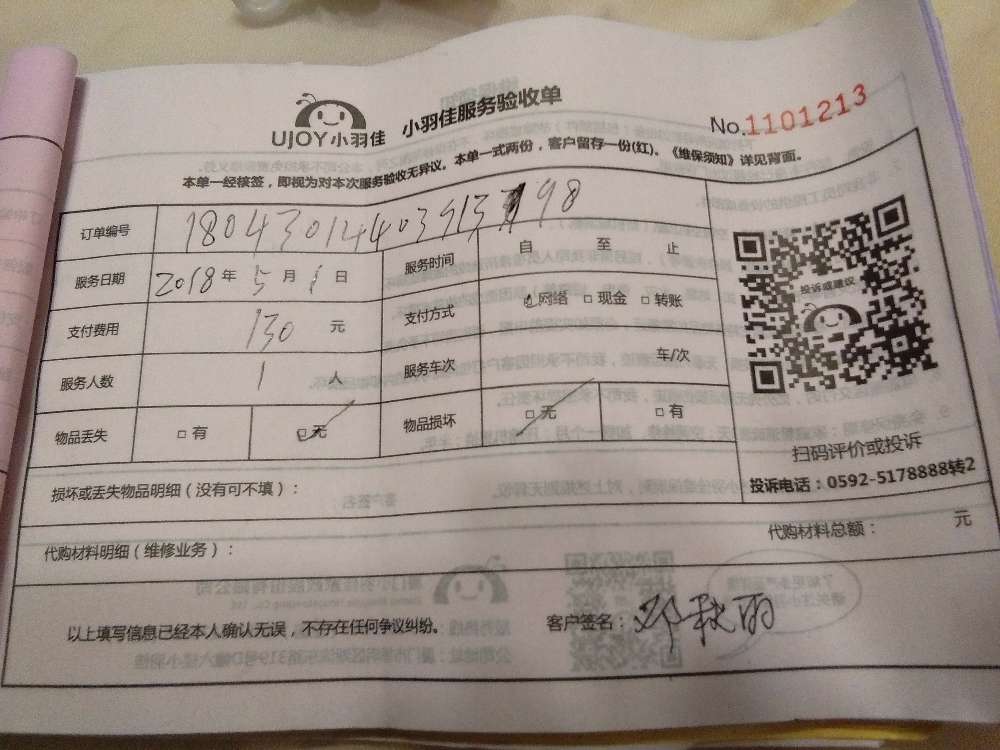 UJOY小羽佳 小羽佳服务验收单
No.1101213
本单一经核签，即视为对本次服务验收无异议。本单一式两份，客户留存一份(红)。《维保须知》详见背面。
订单编号
服务日期 2018 年 5 月 1 日 服务时间 自 至 止
支付费用 130 元 支付方式 网络 □现金 □转账
服务人数 1 人 服务车次 车/次
物品丢失 □有 □无 物品损坏 □无 □有
投诉或建议
扫码评价或投诉
投诉电话：0592-5178888转2
损坏或丢失物品明细（没有可不填）：
代购材料明细（维修业务）： 代购材料总额： 元
以上填写信息已经本人确认无误，不存在任何争议纠纷。 客户签名：邓秋雨